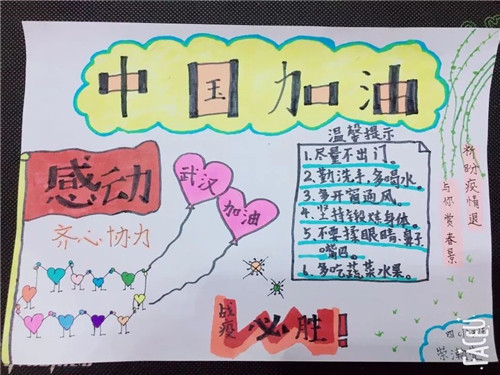 中国加油
感动
齐心协力
武汉
加油
温馨提示
1.尽量不出门。
2.勤洗手,多喝水。
3.多开窗通风。
4.坚持锻炼身体。
5.不要揉眼睛、鼻子、
嘴巴。
6.多吃蔬菜水果。
祈盼疫情退
与你赏春景
战疫
必胜!
FACU